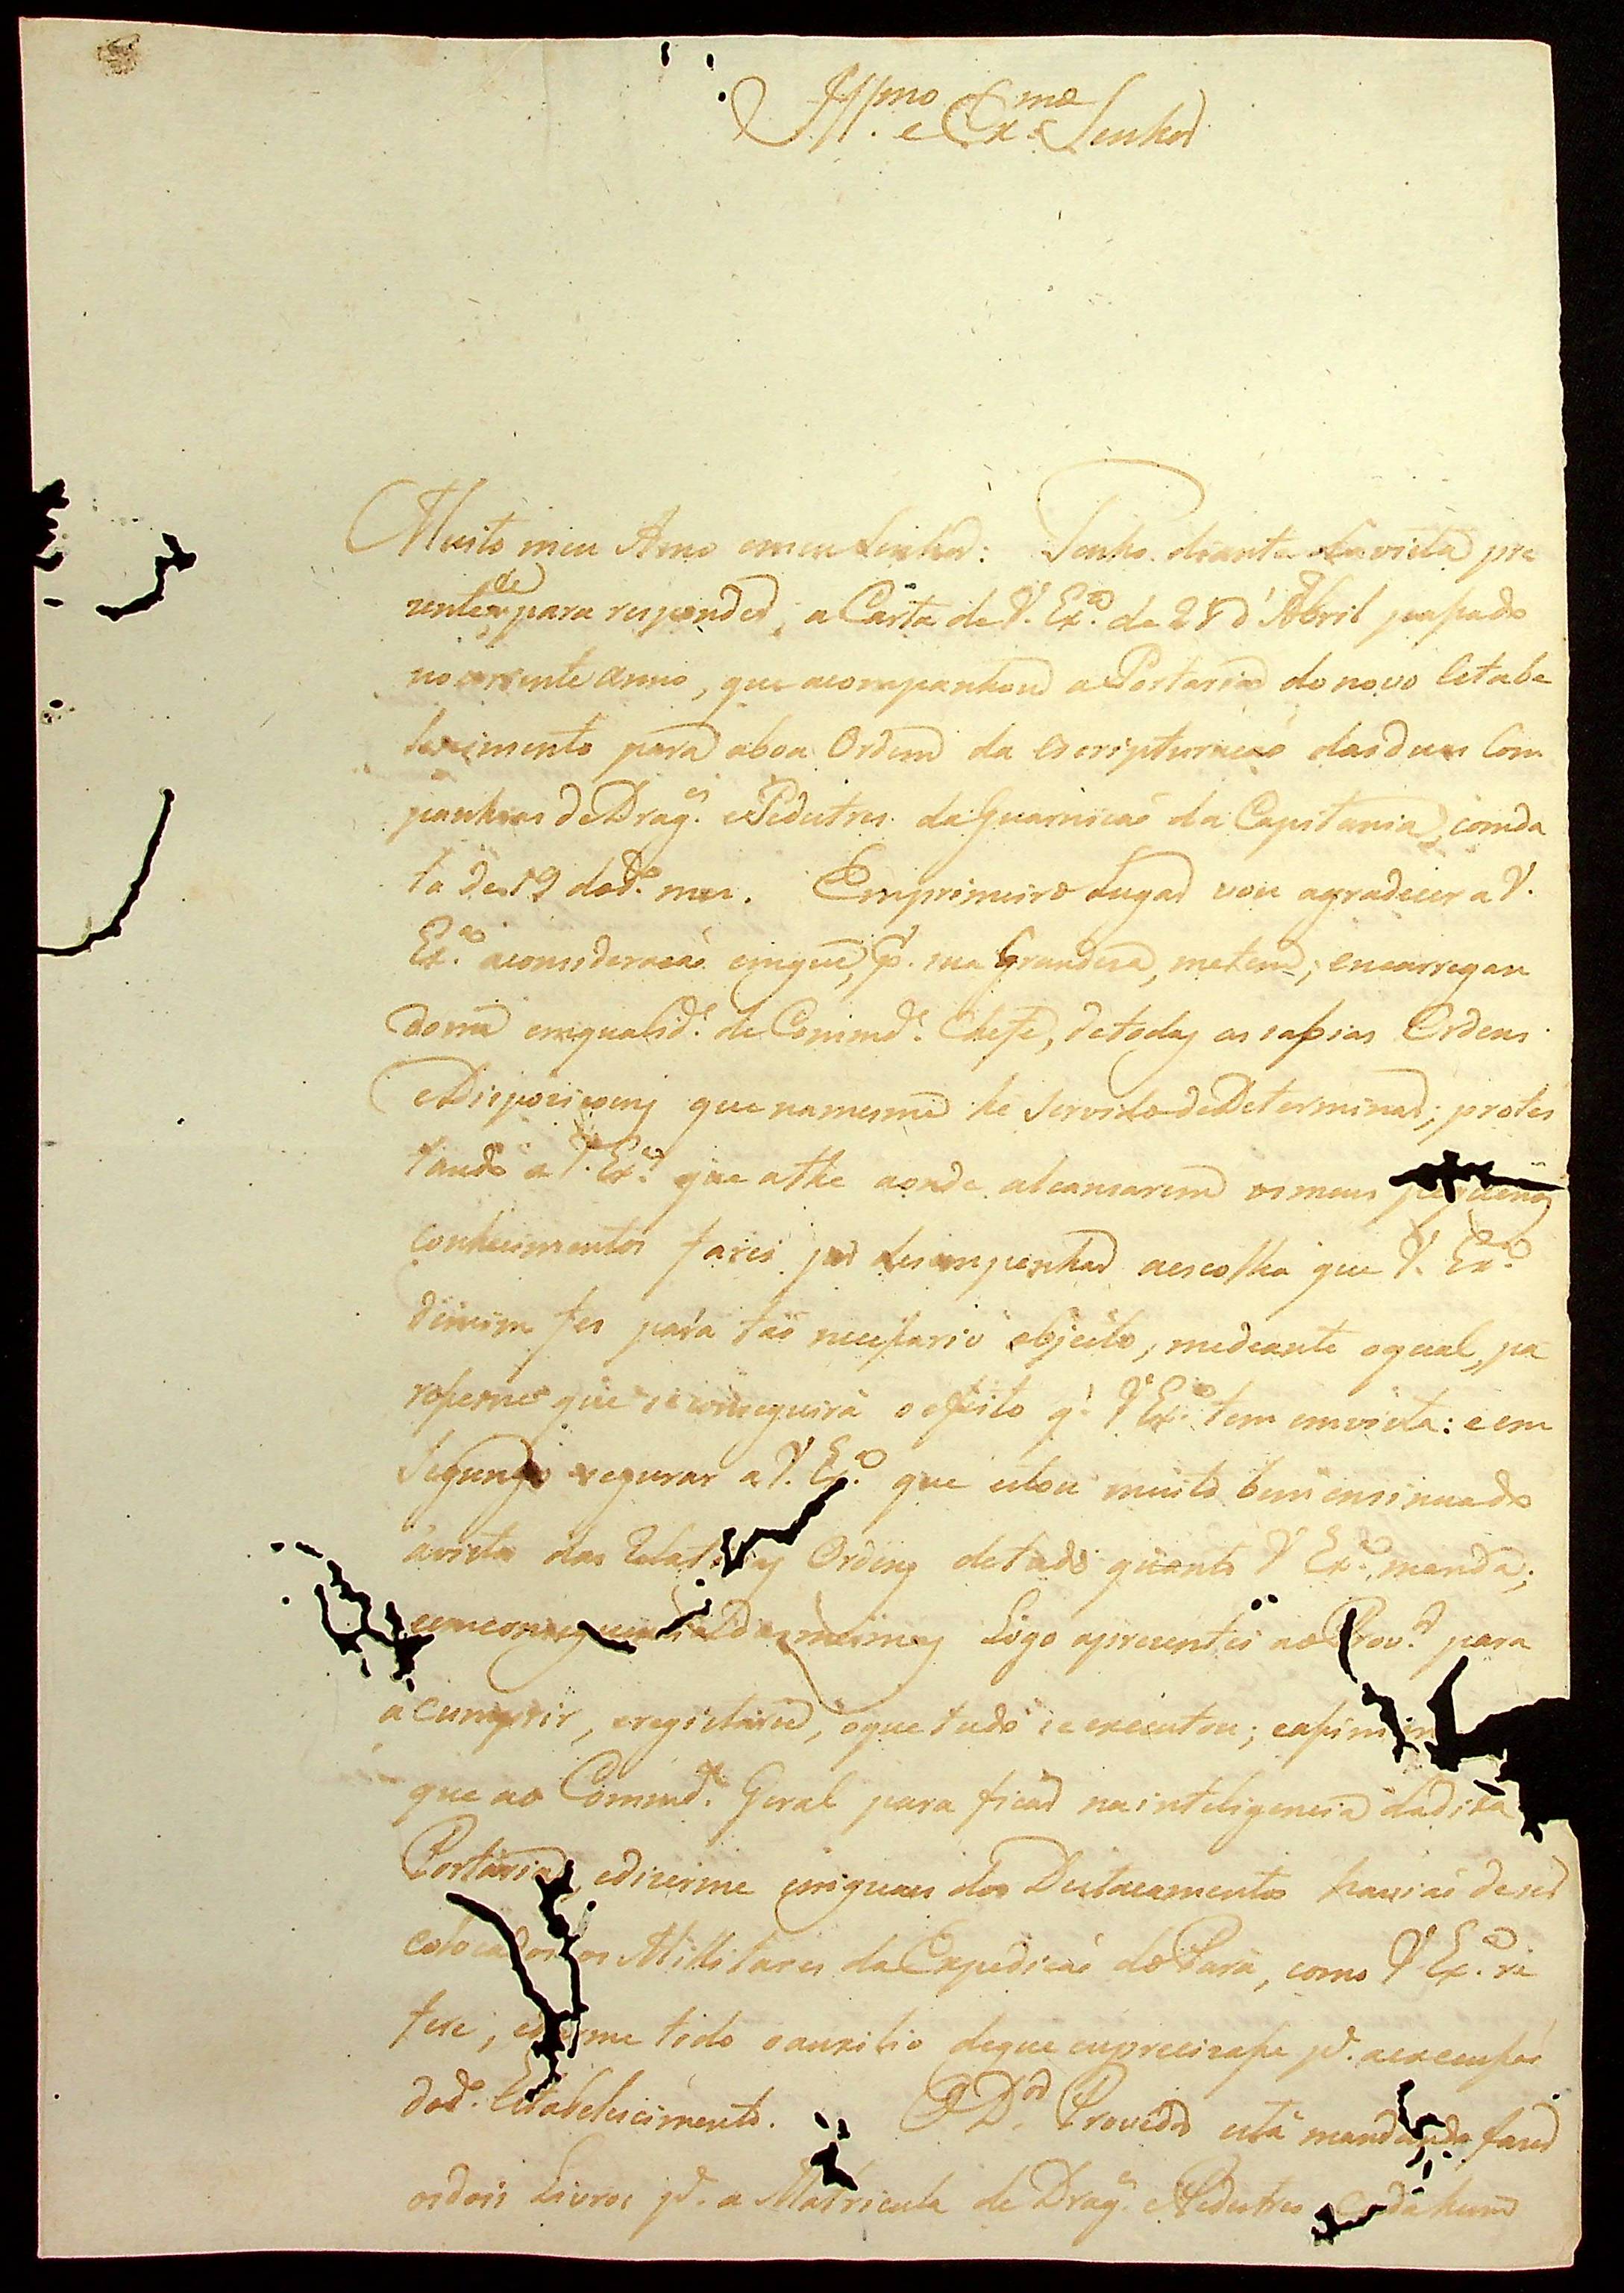 Ill.mo e Ex.mo Senhor
Muito meu Amo e meu Senhor: Tenho diante da vista pre
zente de para responder, a Carta de V. Ex.a de 28 d'Abril passado
no corrente anno, que acompanhou a Portaria do novo Estabe
lecimento para aboa Ordem da escripturacaó das duas Com
panhias de Drag.es e Pedestres da Guarnicaó da Capitania, com da
ta de 19 dod.o mez. Em primeiro Lugar vou agradecer a V.
Ex.a aconsideracaó em que, p.r sua Grandeza, me tem, encarregan
dome em qualid.e de Command.e Chefe, de todas as sabias Ordens
e Dispozicoens que na mesma he Servido de Determinar; protes
tando a V. Ex.a que athe aonde alcansarem os meus pequenos
conhecimentos farei por desempenhar aescolha que V. Ex.a
de mim fes para taó necessario objecto, mediante oqual, pa
rosseme que se conseguirá o efeito q.e V Ex.a tem em vista: e em
Segundo segurar a V. Ex.a que estou muito bem ensinuado
avista das Relativas Ordens de tudo quanto V Ex.a manda;
e em consequencia Das mesmas Logo aprezentei ao Prov.or para
a cumprir, e registarem, o que tudo se executou; e assim
que ao Command.e Geral para ficar na inteligencia da dita
Portaria, e dizerme em quaes dos Destacamentos haviaó de ser
colocados os Millitares da Expedicaó do Pará, como V Ex.a re
fere, e darme todo o auxilio de que eu precizasse p.a a execussaó
dod.o Estabelecimento. O D.or Provedor está mandando fazer
os dois Livros p.a a Matricula de Drag.es e Pedestres cada hum